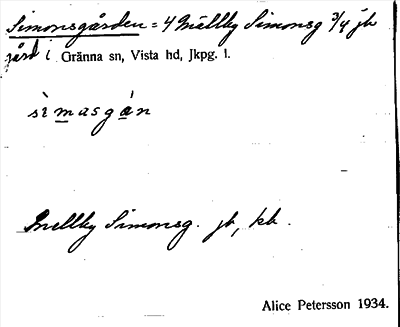 Simonsgården = 4 Mellby Simonsg 3/4 jb
gård i Gränna sn, Vista hd, Jkpg. l.
sìmasgán
Mellby Simonsg. jb, kb.
Alice Petersson 1934.